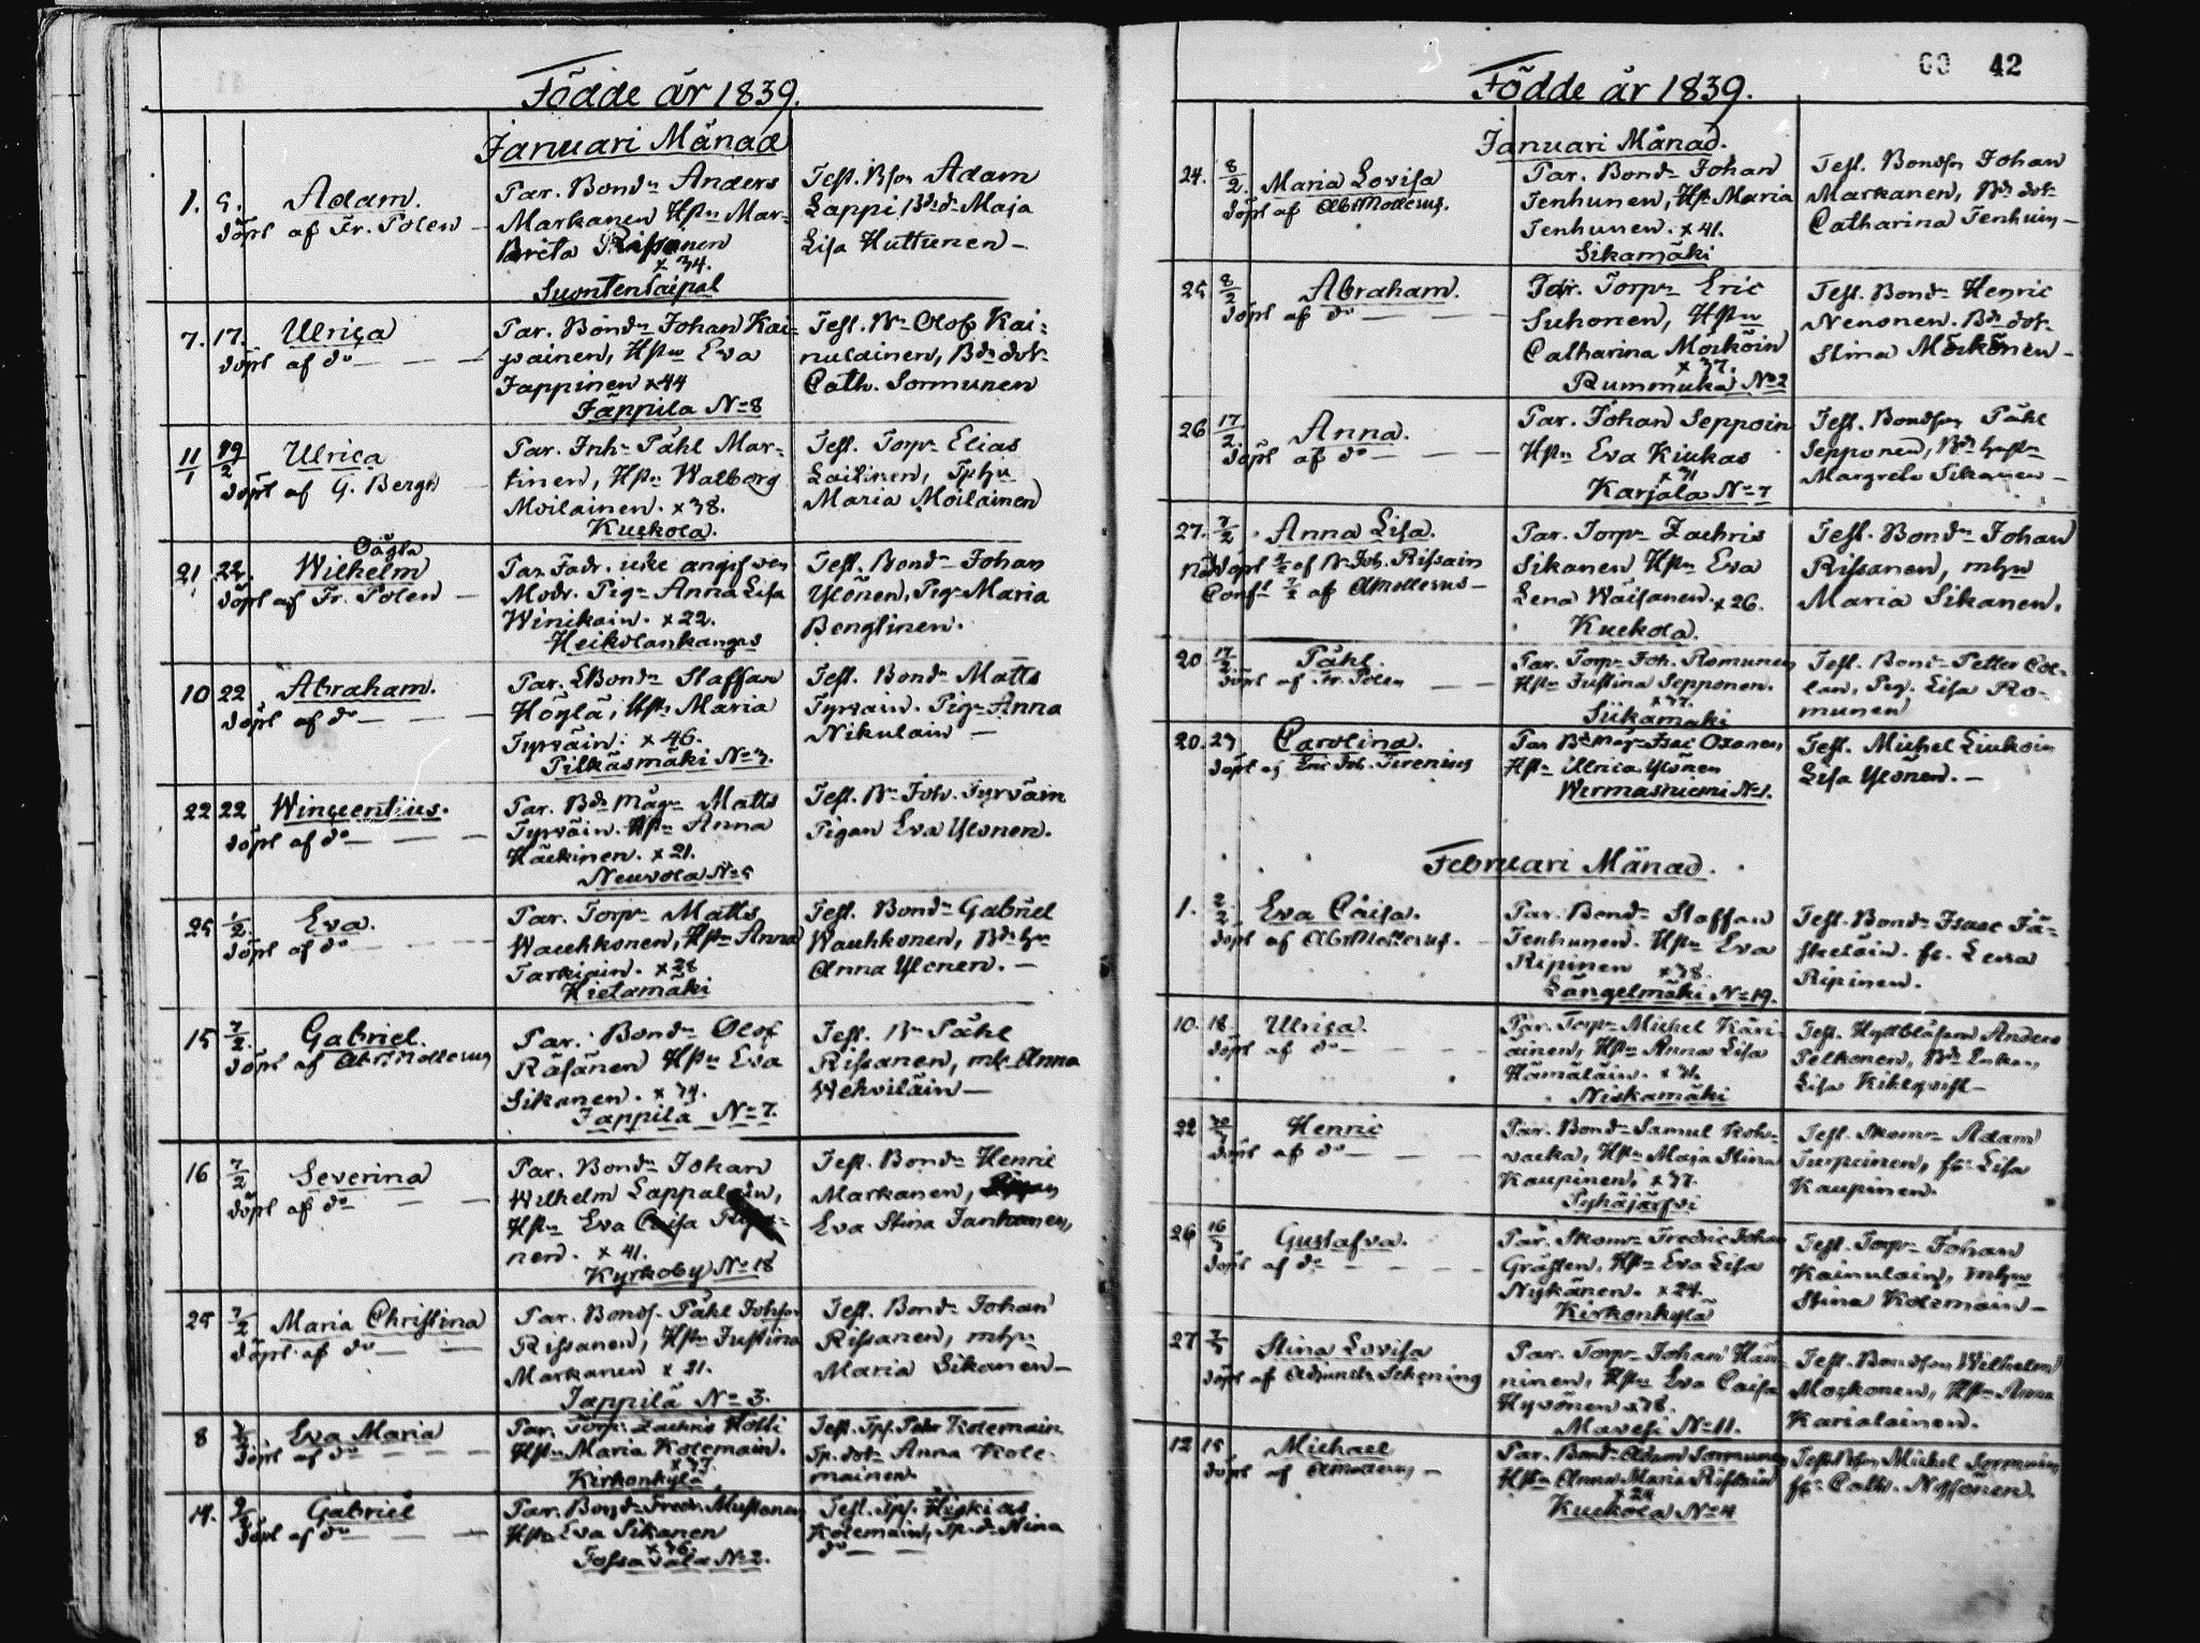 Födde år 1839.
Januari Månad
1. 6. Adam.
döpt af Fr. Polen
Par. Bondn Anders
Markanen Hstn Mar-
Brita Rissanen
x 34.
Suontentaipal
Test. Bson Adam
Lappi Bdr d. Maja
Lisa Huttunen
7. 17. Ulrica
döpt af do
Par. Bondn Johan Kai-
painen, Hstn Eva
Jappinen x 44
Jäppilä No 8
Test. Bn Olof Kai-
nulainen, Bdr dotr
Cath. Sormunen
11/1 19/2 Ulrica
döpt af G. Bergh
Par. Inh. Påhl Mar-
tinen, Hstn Walborg
Moilainen. x 38.
Kuckola.
Test. Torpr Elias
Laitinen, Tphu
Maria Moilainen
21 22. Oägta
Wilhelm
döpt af Fr. Polen
Par. Fadr. icke angifven
Modr. Pign Anna Lisa
Winikain. x 22.
Heikolankangas
Test. Bondn Johan
Ylönen, Pign Maria
Bengtinen.
10 22 Abraham.
döpt af do
Par. Bondn Staffan
Höglä, Hstn Maria
Tyrväin. x 46.
Pilkäsmäki No 3.
Test. Bondn Matts
Tyrväin. Pign Anna
Nikulain
22 22 Wincentius.
döpt af do
Par. Bdr Mågn Matts
Tyrväin. Hstn Anna
Häckinen. x 21.
Neuvola No 5
Test. Bn Joh. Tyrväin
Pigan Eva Ylönen.
25 1/2. Eva.
döpt af do
Par. Torpr Matts
Wauhkonen, Hstn Anna
Tarkiain. x 28
Hietamäki
Test. Bondn Gabriel
Wauhkonen, Bdr hu
Anna Ylönen.
15 7/2. Gabriel.
döpt af Abr. Mollerus
Par. Bondn Olof
Räsänen Hstn Eva
Sikanen. x 34.
Jäppilä No 7.
Test. Bn Påhl
Rissanen, mh Anna
Wehviläin
16 7/2 Severina
döpt af do
Par. Bondn Johan
Wilhelm Lappalain,
Hstn Eva Caisa
nen. x 41.
Kyrkoby No 18
Test. Bondn Henric
Markanen,
Eva Stina Janhonen,
25 7/2 Maria Christina
döpt af do
Par. Bonds. Påhl Johsn
Rissanen, Hstn Justina
Markanen x 21.
Jäppilä No 3.
Test. Bondn Johan
Rissanen, mhu
Maria Sikanen
8 Eva Maria
döpt af do
Par. Torpr Zachris Hölli
Hstn Maria Kolemain.
x 37
Kirkonkylä
Test. Tps. Petter Kolemain
Tp. dotr Anna Kole-
mainen
14. Gabriel
döpt af do
Par. Bondn Fredr. Mustonen
Hstn Eva Sikanen
x 36.
Tossavala No 2.
Test. Tps. Hiskias
Kolemain, Tp. d. Stina
do
42
Födde år 1839.
Januari Månad.
24. 8/2. Maria Lovisa
döpt af Abr Mollerus.
Par. Bondn Johan
Tenhunen, Hstn Maria
Tenhunen. x 41.
Sikamäki
Test. Bondsn Johan
Markanen, Bdr dotr
Catharina Tenhuin
25 8/2 Abraham.
döpt af do
Par. Torpr Eric
Suhonen, Hstn
Catharina Morkoin
x 37.
Rummuka No 2
Test. Bondn Henric
Nenonen. Bdr dotr
Stina Mörkönen
26 17/2. Anna.
döpt af do
Par. Johan Seppoin
Hstn Eva Kiukas
x 31
Karjala No 7
Test. Bondson Påhl
Sepponen, Bdr hustr
Margreta Sikanen
27. 7/2 Anna Lisa.
Nöddöpt af Bn Joh. Rissain
Conft 7/2 af AMollerus
Par. Torpr Zachris
Sikanen Hstn Eva
Lena Wäisänen. x 26.
Kuckola.
Test. Bondn Johan
Rissanen, mhu
Maria Sikanen.
20 17/2. Påhl.
döpt af Fr. Polen
Par. Torpr Joh. Romunen
Hstn Justina Sepponen.
x 37.
Siikamäki
Test. Bondn Petter Col-
lan, Pig. Lisa Ro-
munen
20. 23 Carolina.
döpt af Eric Joh. Tirenius
Par. Bdr måg Isac Oxanen
Hstn Ulrica Ylönen
Wirmasniemi No 1.
Test. Michel Liukoin
Lisa Ylönen.
Februari Månad.
1. 2/2 Eva Caisa.
döpt af Abr Mollerus.
Par. Bondn Staffan
Tenhunen. Hstn Eva
Ripinen x 38.
Längelmäki No 19.
Test. Bondn Isaac Jä-
skeläin. fr. Lena
Ripinen.
10. 18. Ulrica.
döpt af do
Par. Torpr Michel Käri-
ainen, Hstn Anna Lisa
Hämäläin. x 31.
Niskamäki
Test. Anders
Pelkonen, Bdr Enkan
Lisa Kihlqvist
22 Henric
döpt af do
Par. Bondn Samul Koh-
vacka, Hstn Maja Stina
Kaupinen, x 37.
Pyhäjärfvi
Test. Skomr Adam
Turpeinen, fr. Lisa
Kaupinen.
26 16/3 Gustafva.
döpt af do
Par. Skomr Fredric Johan
Gråsten, Hstn Eva Lisa
Nykänen. x 24.
Kirkonkylä
Test. Torpr Johan
Kainulain, mhu
Stina Kolemain
27 Stina Lovisa
döpt af Adjuncten Schening
Par. Torpr Johan Hän-
ninen, Hstn Eva Caisa
Hyvönen x 38.
Mavesi No 11.
Test. Bondson Wilhelm
Morkonen, Hstn Anna
Karialainen.
12 15 Michael
döpt af AMollerus
Par. Bondn Adam Sormunen
Hstn Anna Maria Rissain
x 24
Kuckola No 4
Test. Bson Michel Sormuin
fr. Cath. Nissönen.